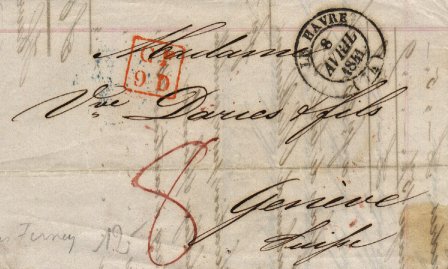 LE HAVRE
8
AVRIL
1841
(74)
Madame
9 D
Vve Daries & fils
8
Genève
Suisse
Ferney 12